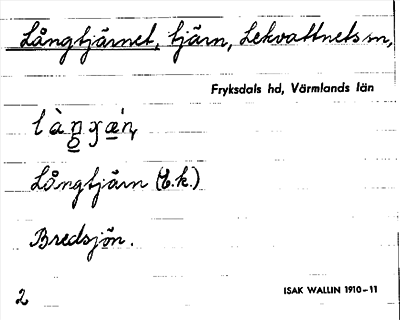 Långtjärnet, tjärn, Lekvattnets sn,
Fryksdals hd, Värmlands län
Långtjärn (E.k.)
Bredsjön.
2
ISAK WALLIN 1910–11